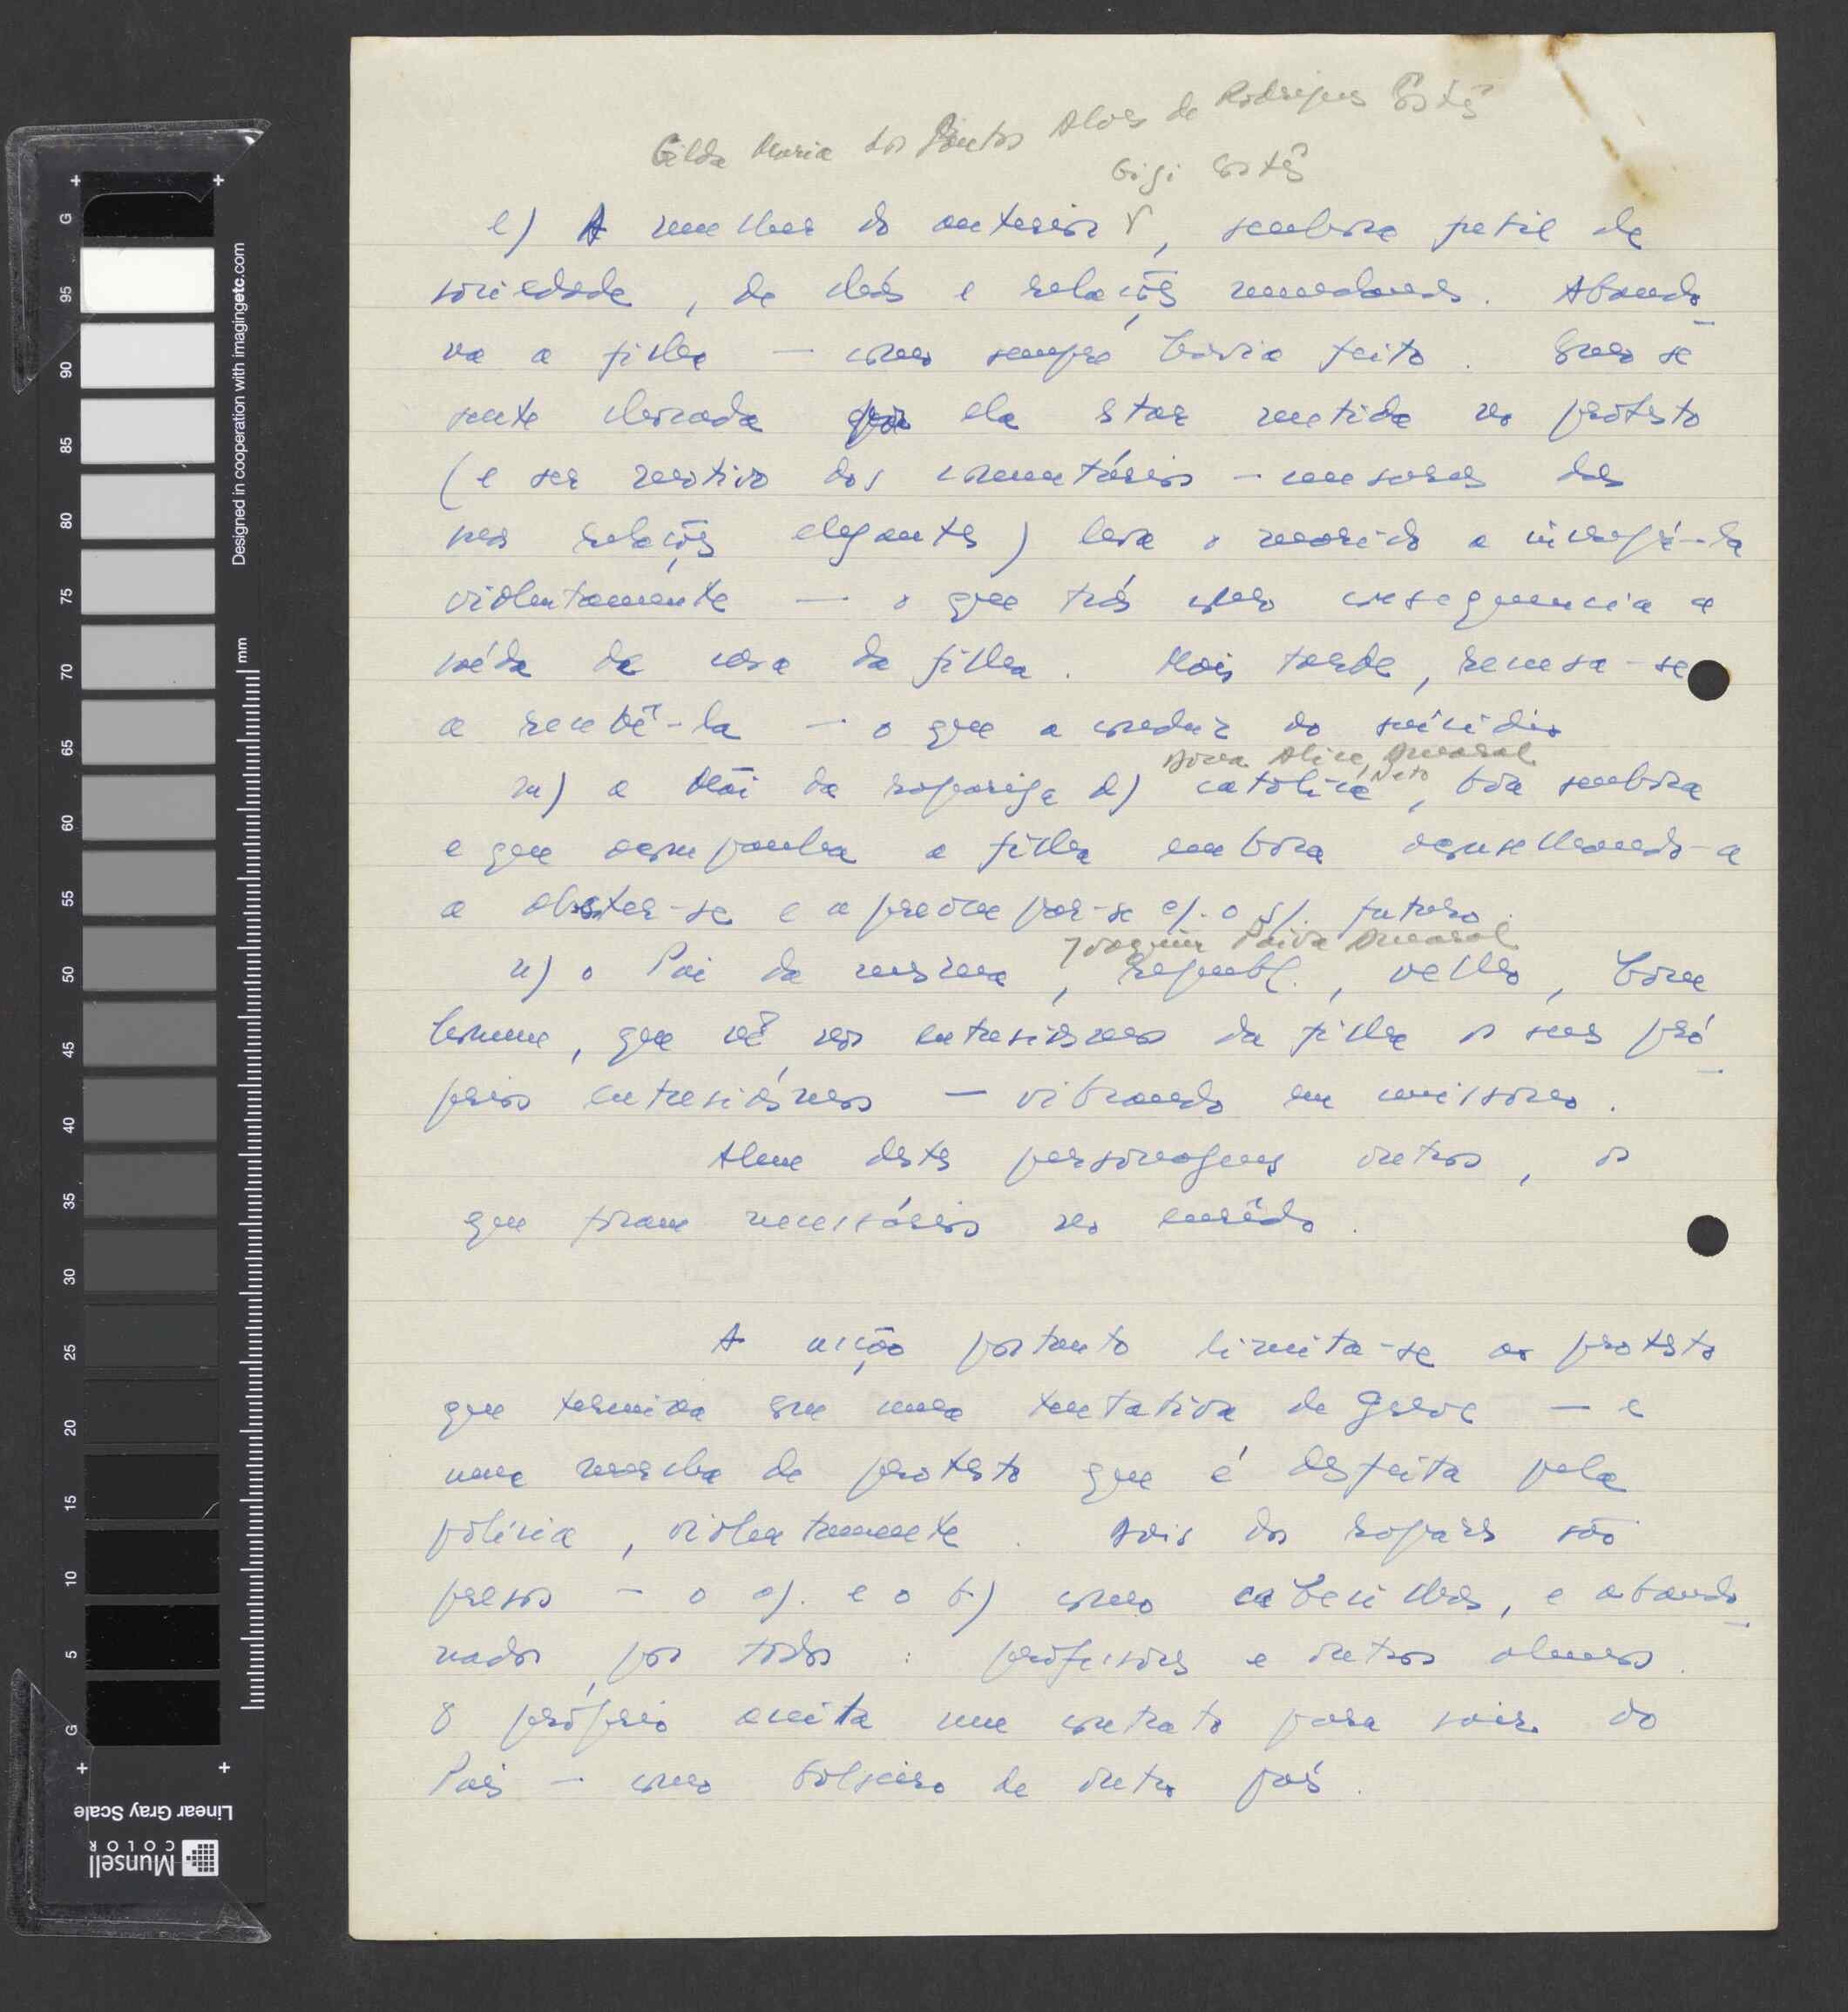 Gilda Maria dos Santos Alves de Rodrigues Cortês
Gigi Cortês
l) A mulher do anterior, senhora fútil da
sociedade, de chás e relações mundanas. Abando-
na a filha — como sempre havia feito. Como se
sente chocada por ela star metida no protesto
(e ser motivo dos comentários - censuras das
suas relações elegantes) leva o marido a
violentamente — o que trás como consequencia a
saída da casa da filha. Mais tarde, recusa-se
a recebê-la — o que a conduz ao suicídio
Dona Alice Amaral
Neto
m) a Mãi da rapariga d) católica, boa senhora
e que acompanha a filha embora aconselhando-a
a abster-se e a preocupar-se c/. o s/. futuro.
Joaquim Paiva Amaral
n) o Pai da mesma, republ., velho, bom
homem, que vê nos entusiasmos da filha os seus pró-
prios entusiásmos — vibrando em uníssono.
Alem destes personagens outros, os
que foram necessários no enrêdo.
A acção portanto limita-se ao protesto
que termina em uma tentativa de greve — e
uma marcha de protesto que é desfeita pela
polícia, violentamente. Dois dos rapazes são
presos - o a). e o b) como cabecilhas, e abando-
nados por todos: professores e outros alunos.
O próprio aceita um contrato para sair do
País — como bolseiro de outro país.